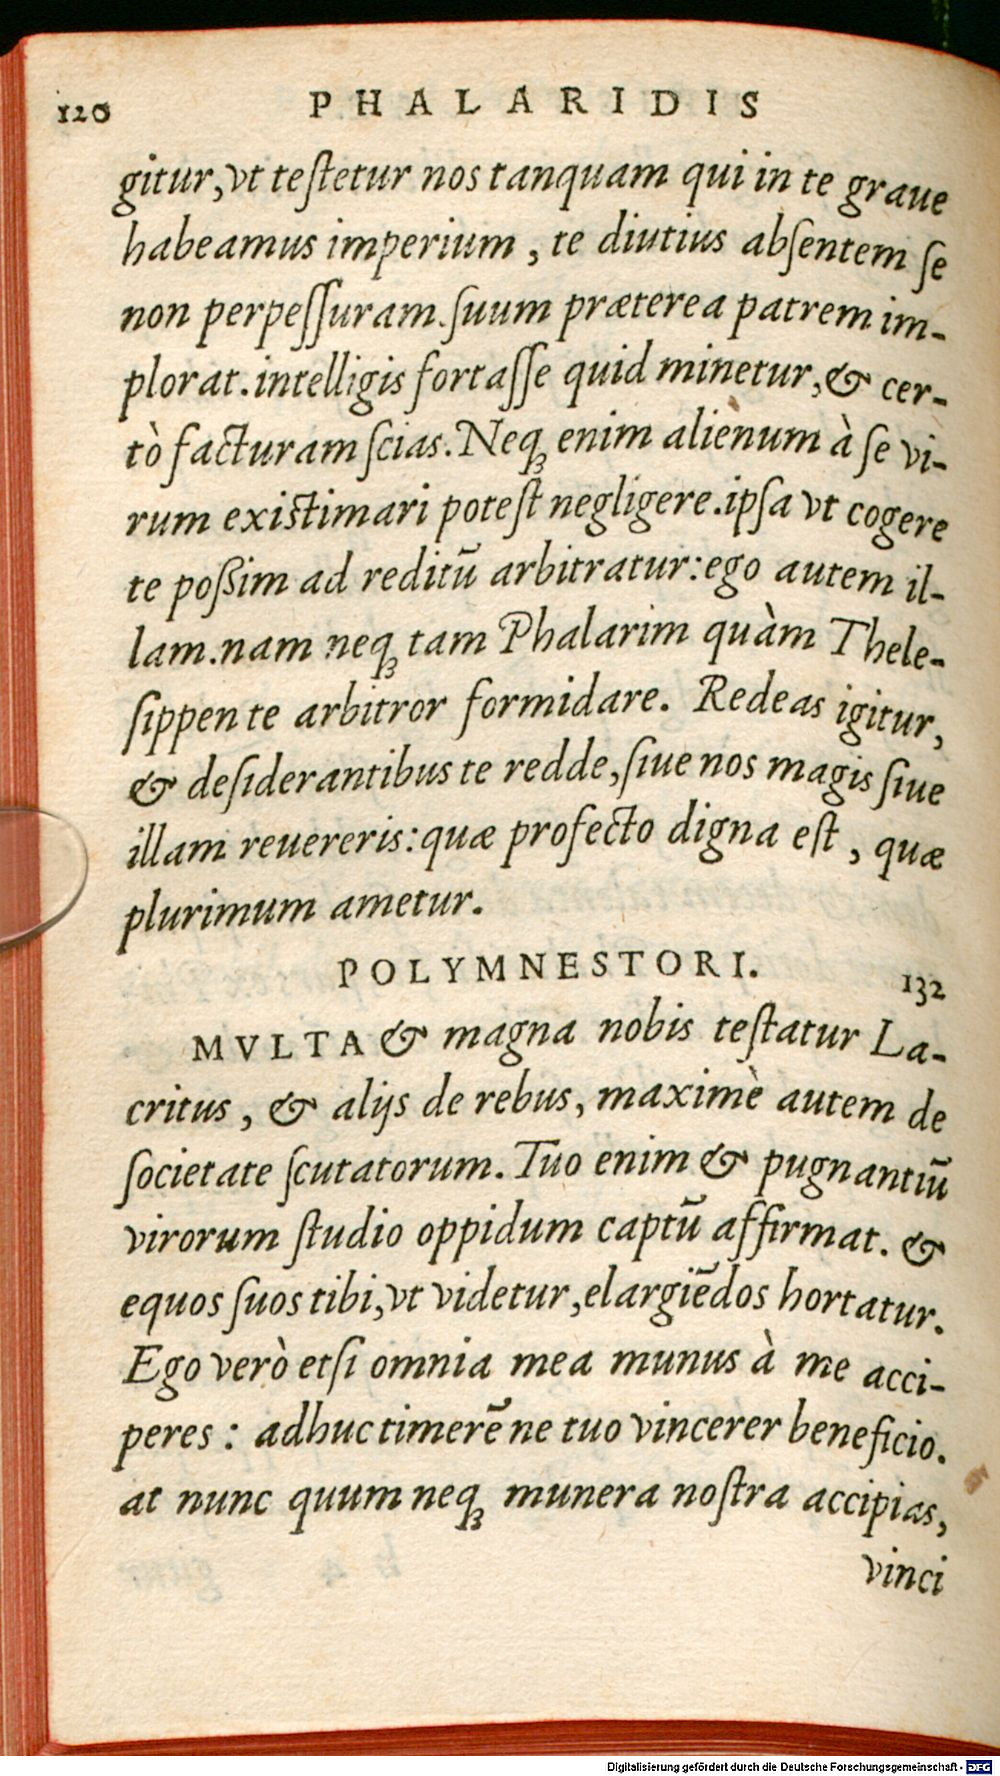 120 PHALARIDIS
gitur, vt teſtetur nos tanquam qui in te graue
habeamus imperium, te diutius abſentem ſe
non perpeſſuram. ſuum præterea patrem im-
plorat. intelligis fortaſſe quid minetur, & cer-
tò facturam ſcias. Neqꝫ enim alienum à ſe vi-
rum existimari poteſt negligere. ipſa vt cogere
te poßim ad reditū arbitratur: ego autem il-
lam. nam neqꝫ tam Phalarim quàm Thele-
ſippen te arbitror formidare. Redeas igitur,
& deſiderantibus te redde, ſiue nos magis ſiue
illam reuereris: quæ profecto digna eſt, quæ
plurimum ametur.
POLYMNESTORI. 132
MVLTA & magna nobis teſtatur La-
critus, & alijs de rebus, maximè autem de
ſocietate ſcutatorum. Tuo enim & pugnantiū
virorum ſtudio oppidum captū affirmat. &
equos ſuos tibi, vt videtur, elargiēdos hortatur.
Ego verò etſi omnia mea munus à me acci-
peres: adhuc timerē ne tuo vincerer beneficio.
at nunc quum neqꝫ munera noſtra accipias,
vinci
Digitalisierung gefördert durch die Deutsche Forschungsgemeinschaft - DFG